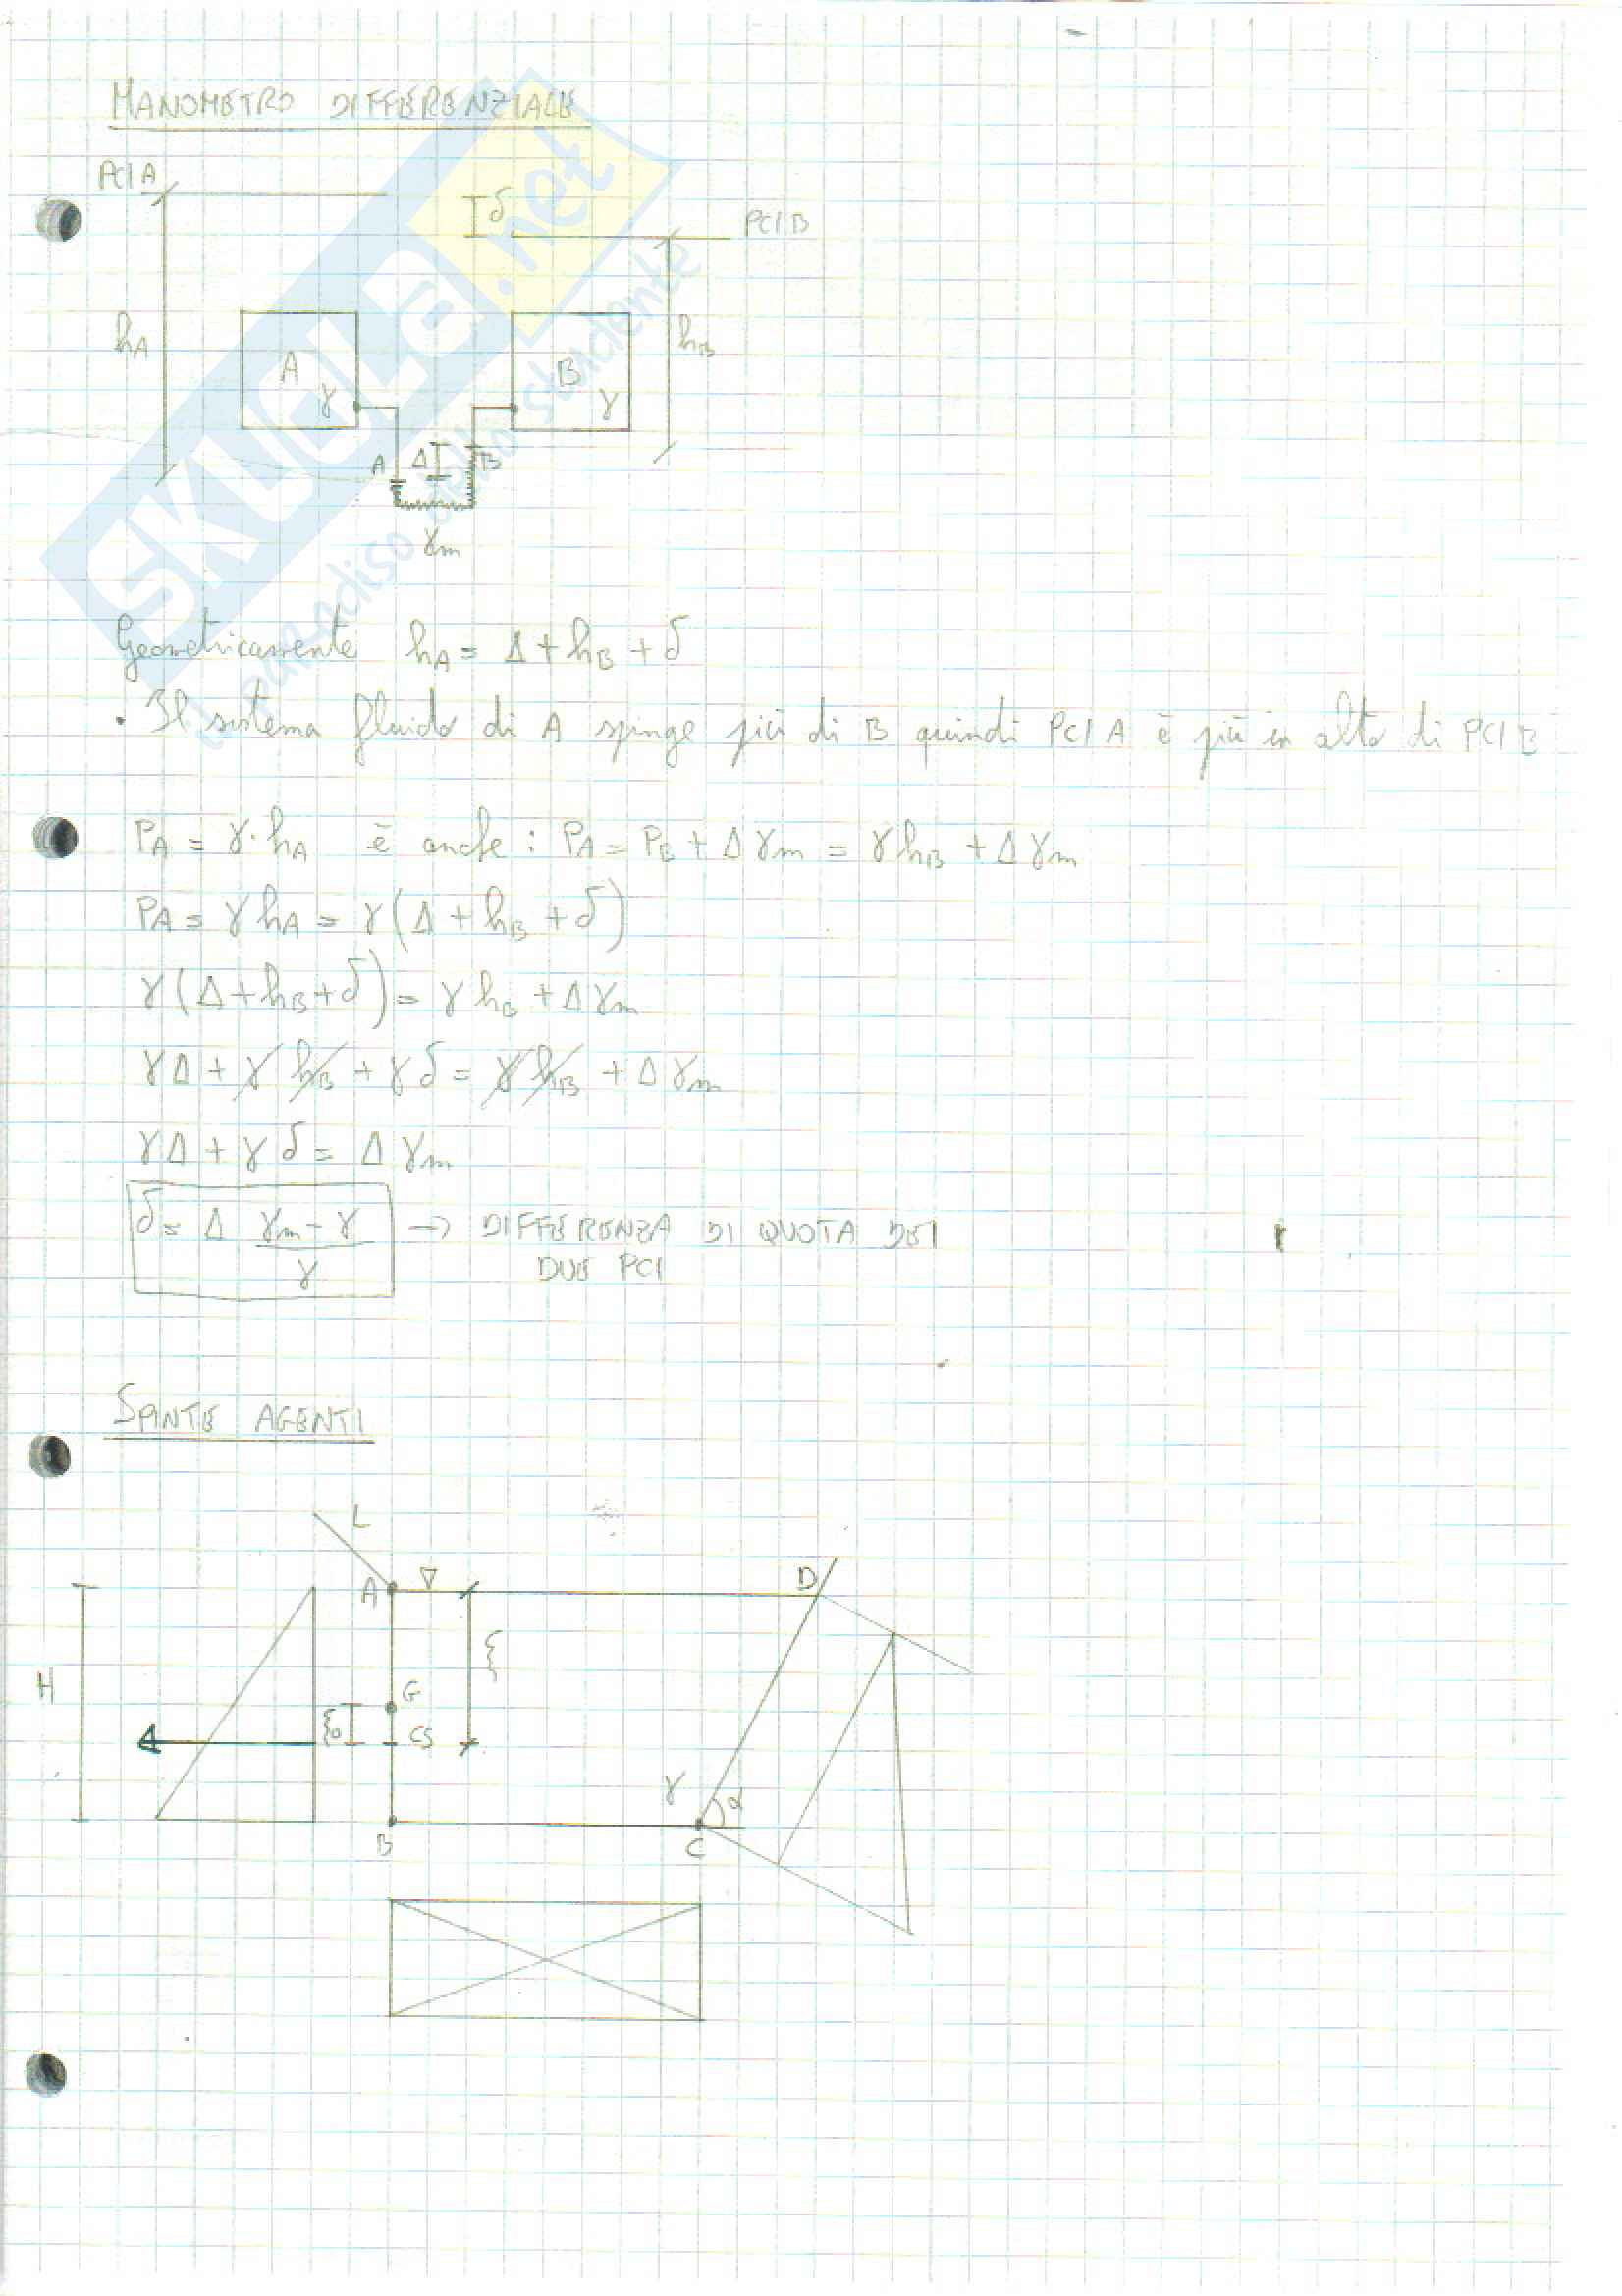 MANOMETRO DIFFERENZIALE
PCI A
δ
PCI B
hA
hB
A
B
γ
γ
A
Δ
B
γm
SKUOLA.net
il paradiso dello studente
Geometricamente hA = Δ + hB + δ
• Il sistema fluido di A spinge più di B quindi PCI A è più in alto di PCI B
PA = γ · hA è anche : PA = PB + Δ γm = γ hB + Δ γm
PA = γ hA = γ (Δ + hB + δ)
γ (Δ + hB + δ) = γ hB + Δ γm
γΔ + γ hB + γ δ = γ hB + Δ γm
γΔ + γ δ = Δ γm
δ = Δ (γm - γ) / γ → DIFFERENZA DI QUOTA DEI
DUE PCI
SPINTE AGENTI
L
A
D
ξ
H
G
ξo
CS
γ
α
B
C